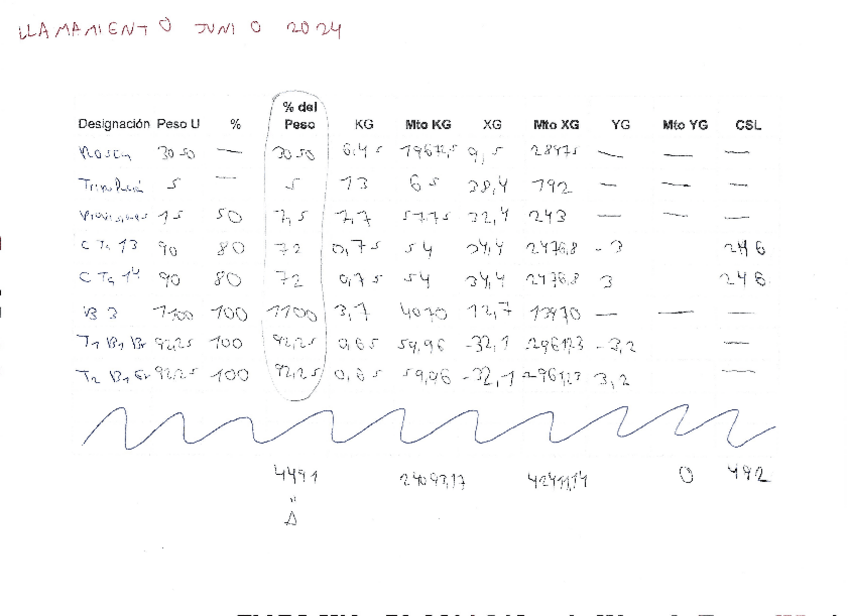 LLAMAMIENTO JUNIO 2024
Designación Peso U % % del Peso KG Mto KG XG Mto XG YG Mto YG CSL
Rosen 3050 — 3050 6,45 19672,5 9,5 28975 — — —
5 — 5 13 65 38,4 192 — — —
Provisiones 15 50 7,5 7,7 57,75 32,4 243 — — —
C Tq 13 90 80 72 0,75 54 34,4 2476,8 -3 246
C Tq 14 90 80 72 0,75 54 34,4 2476,8 3 246
B 3 1100 100 1100 3,7 4070 12,7 13970 — — —
T1 B1 Br 92,25 100 92,25 0,65 59,96 -32,1 -2961,23 -3,2 —
T2 B1 Er 92,25 100 92,25 0,65 59,96 -32,1 -2961,23 3,2 —
4491 24093,17 42411,14 0 492
"
Δ